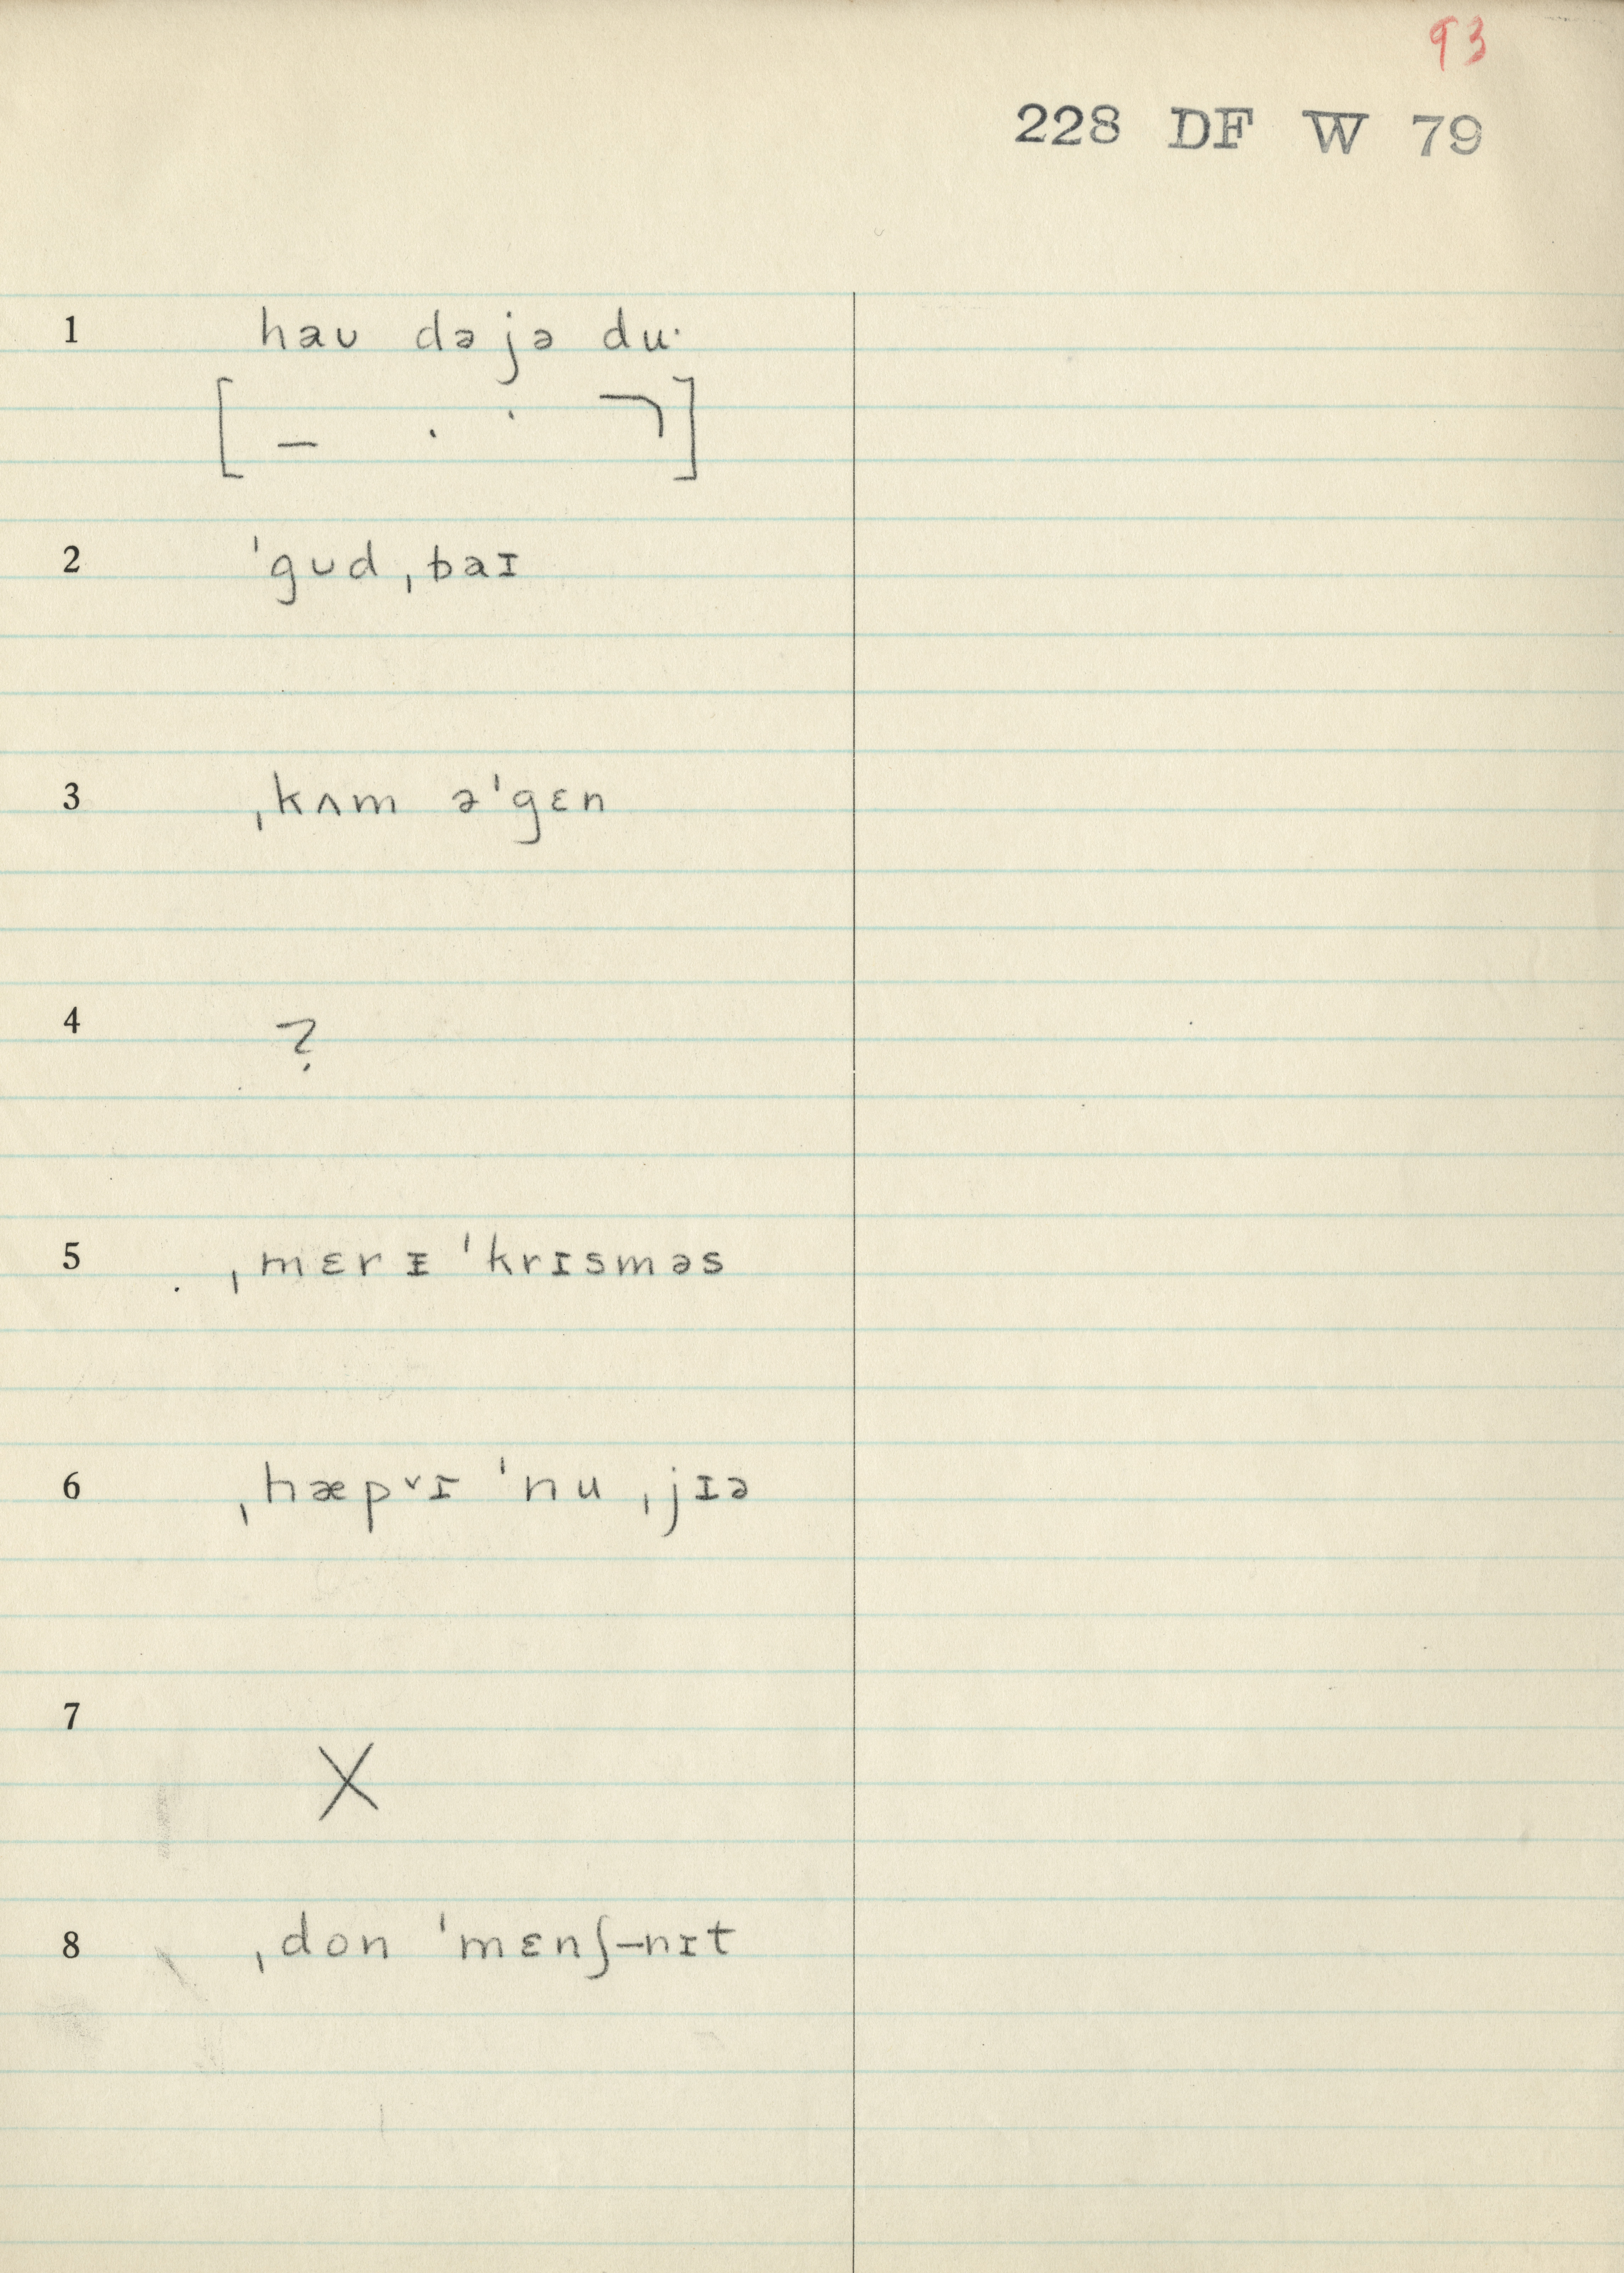 93
228 DF W 79
1 haʊ də jə du·
[ – · · ¬ ]
2 ˈgʊd ˌbaɪ
3 ˌkʌm əˈgɛn
4 ?
5 ˌmɛrɪ ˈkrɪsməs
6 ˌhæpᵛɪ ˈnu ˌjɪə
7 X
8 ˌdon ˈmɛnʃ–nɪt